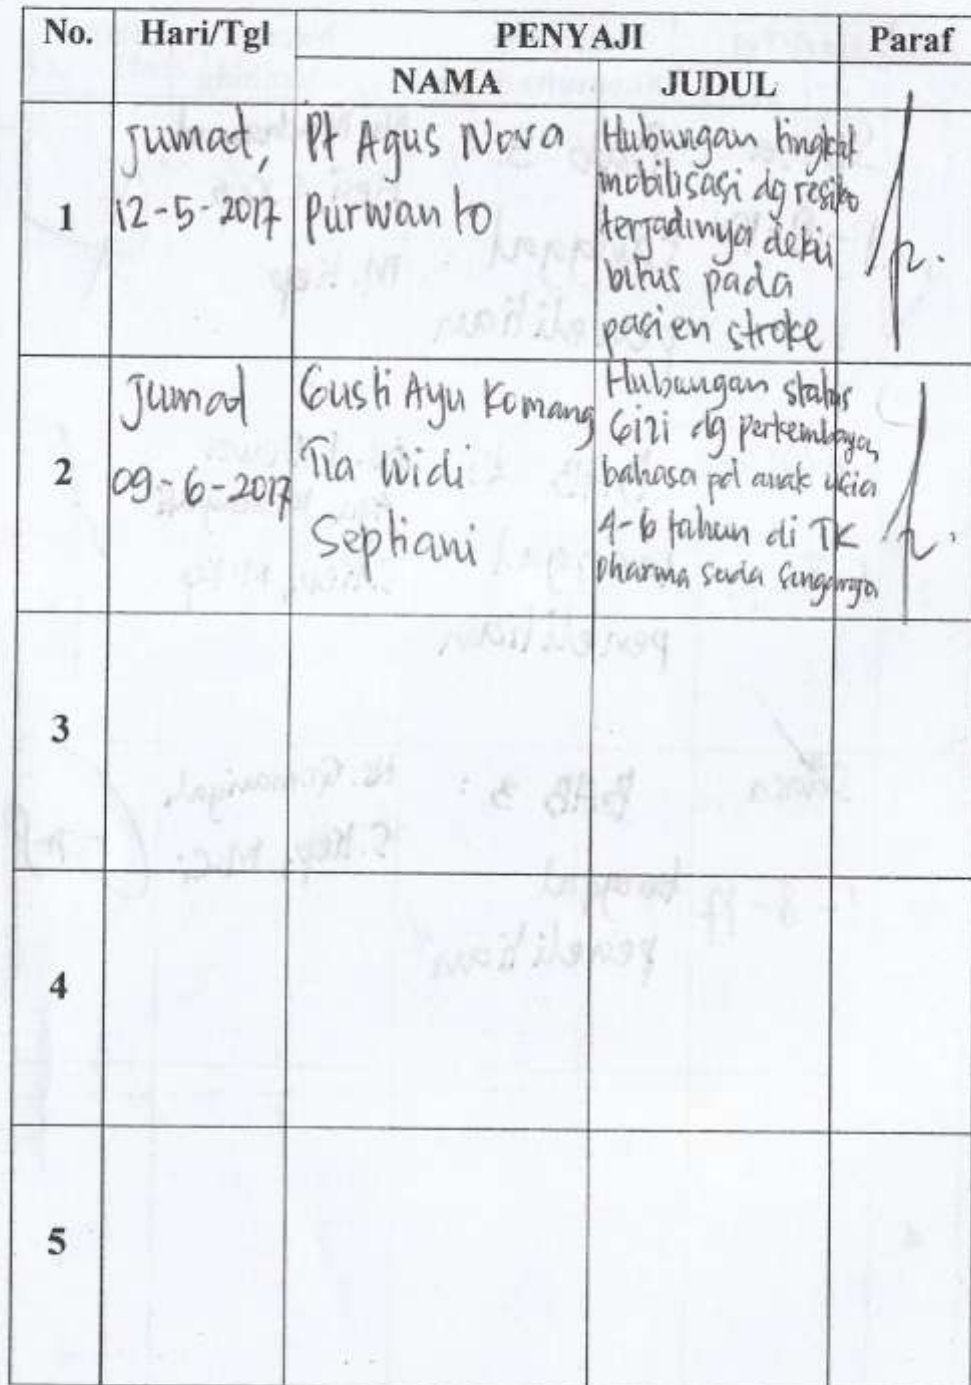 No. Hari/Tgl PENYAJI Paraf
NAMA JUDUL
1
Jumat,
12-5-2017
Pt Agus Nova
Purwanto
Hubungan tingkat
mobilisasi dg resiko
terjadinya deku
bitus pada
pasien stroke
2
Jumat
09-6-2017
Gusti Ayu Komang
Tia Widi
Septiani
Hubungan status
Gizi dg perkembangan
bahasa pd anak usia
4-6 tahun di TK
Dharma
3
4
5